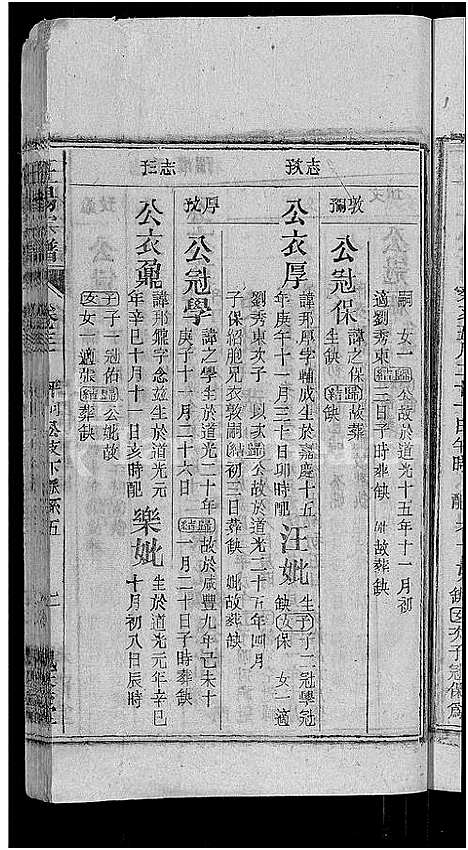 嗣　女一　歸公故於道光十五年十一月初
適劉秀東　結三日子時葬缺　妣故葬缺
敦　公冠保
諱之保　歸故葬
生缺　結缺
志
公衣厚
諱邦厚字輔成生於嘉慶十五
年庚午十一月三十日卯時配
汪妣
生　子子二冠學冠
缺　女保　女二適
劉秀東次子　以次歸公故於道光二十五年四月
子保紹胞兄衣敦嗣結初三日葬缺　妣故葬缺
厚　公冠學
諱之學生於道光二十年歸故於咸豐九年己未十
庚子十一月二十六日　結一月二十日子時葬缺
志
公衣鼐
諱邦鼐字念茲生於道光元
年辛巳十月十一日亥時配
樂妣
生於道光元年辛巳
十月初八日辰時
子子一冠佑歸公妣故
女女一適張結葬缺